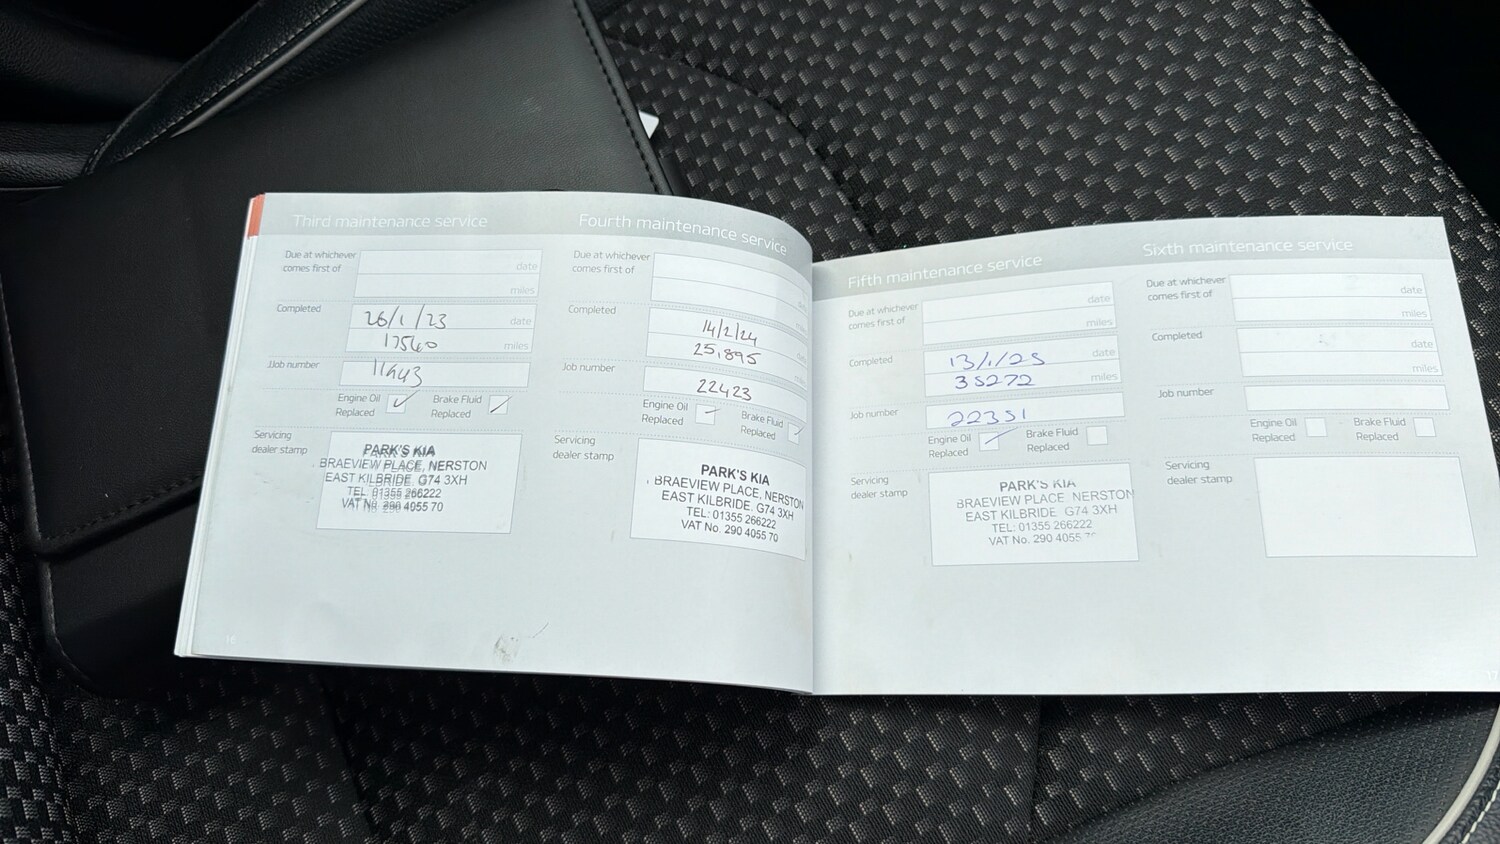 Third maintenance service
Due at whichever
comes first of
date
miles
Completed
26/1/23
date
17560
miles
Job number
Engine Oil
Replaced
Brake Fluid
Replaced
Servicing
dealer stamp
PARK'S KIA
BRAEVIEW PLACE, NERSTON
EAST KILBRIDE. G74 3XH
TEL: 01355 266222
VAT No. 290 4055 70
16
Fourth maintenance service
Due at whichever
comes first of
Completed
14/2/24
25,895
Job number
22423
Engine Oil
Replaced
Brake Fluid
Replaced
Servicing
dealer stamp
PARK'S KIA
BRAEVIEW PLACE, NERSTON
EAST KILBRIDE. G74 3XH
TEL: 01355 266222
VAT No. 290 4055 70
Fifth maintenance service
Due at whichever
comes first of
date
miles
Completed
13/1/25
date
35272
miles
Job number
22351
Engine Oil
Replaced
Brake Fluid
Replaced
Servicing
dealer stamp
PARK'S KIA
BRAEVIEW PLACE, NERSTON
EAST KILBRIDE. G74 3XH
TEL: 01355 266222
VAT No. 290 4055
Sixth maintenance service
Due at whichever
comes first of
date
miles
Completed
date
miles
Job number
Engine Oil
Replaced
Brake Fluid
Replaced
Servicing
dealer stamp